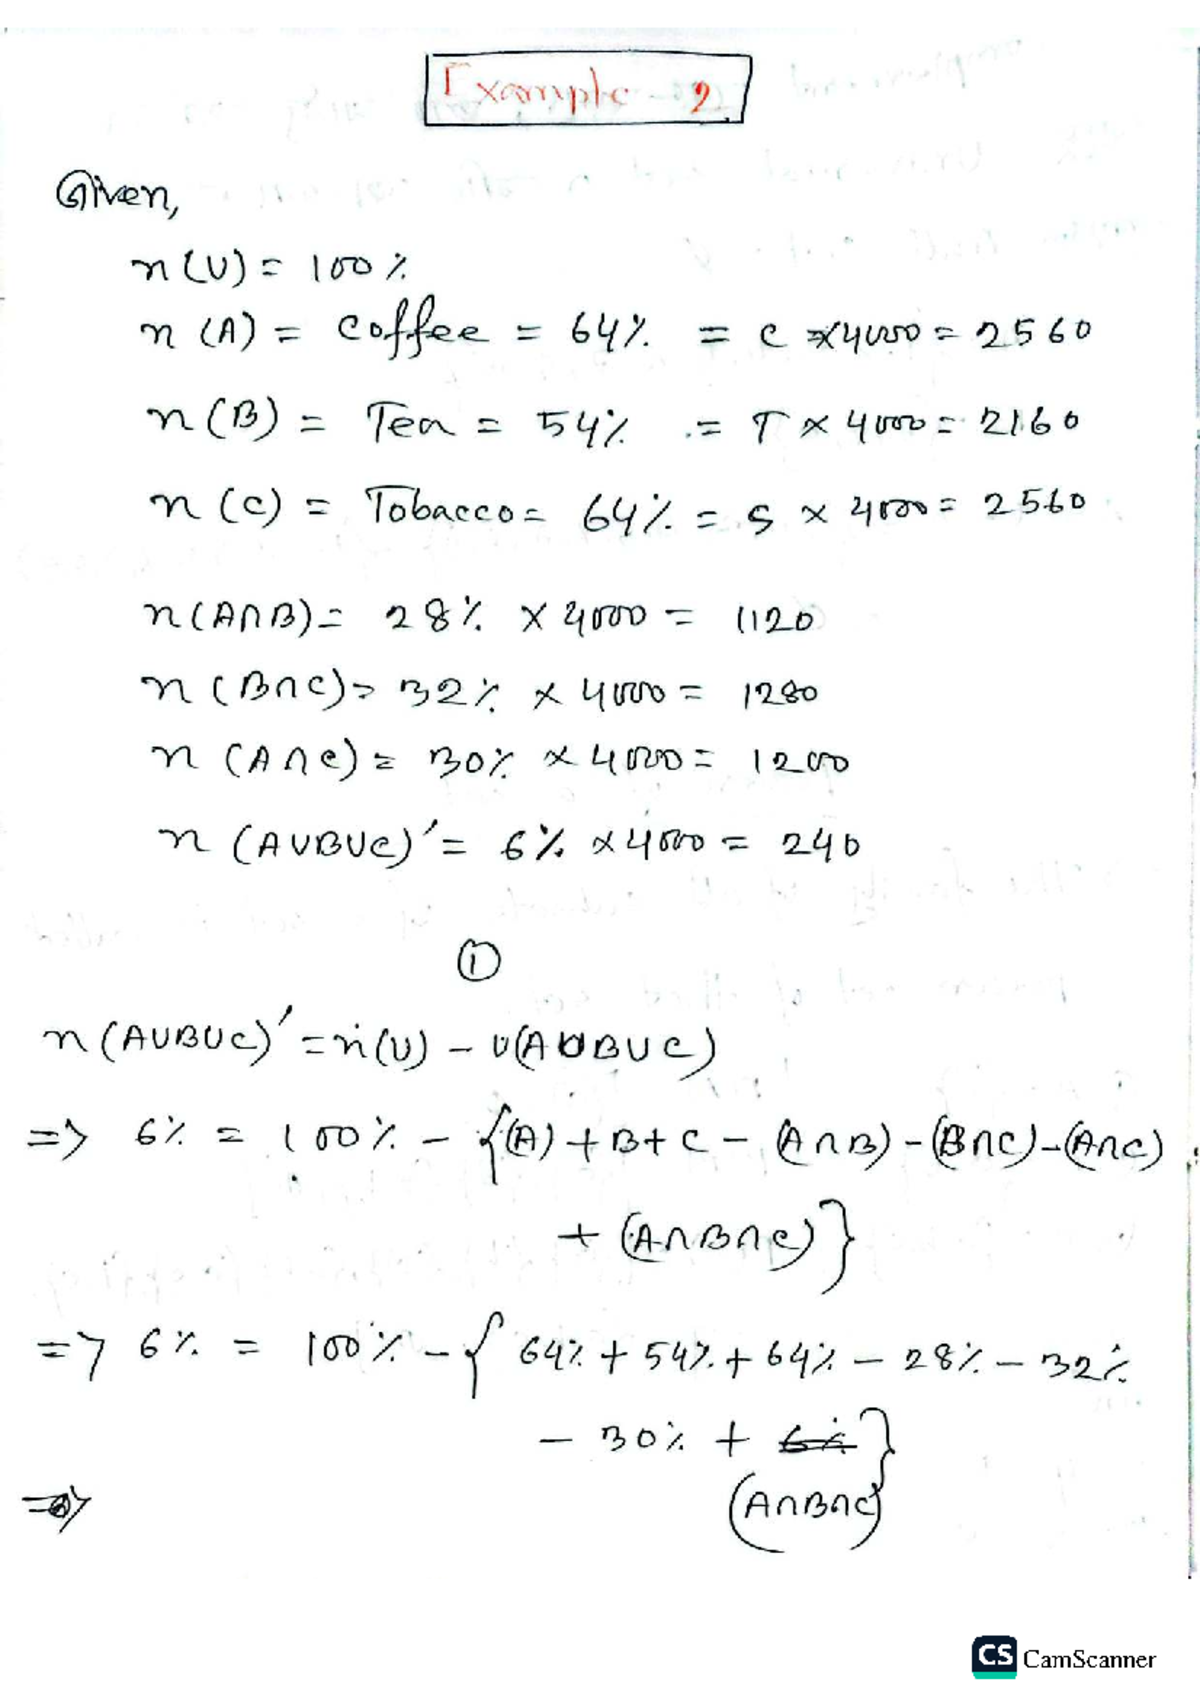 Example - 2
Given,
n(U) = 100%
n(A) = Coffee = 64% = C × 4000 = 2560
n(B) = Tea = 54% = T × 4000 = 2160
n(C) = Tobacco = 64% = S × 4000 = 2560
n(A∩B) = 28% × 4000 = 1120
n(B∩C) = 32% × 4000 = 1280
n(A∩C) = 30% × 4000 = 1200
n(A∪B∪C)' = 6% × 4000 = 240
①
n(A∪B∪C)' = n(U) - U(A∪B∪C)
=> 6% = 100% - {(A) + B + C - (A∩B) - (B∩C) - (A∩C)
+ (A∩B∩C)}
=> 6% = 100% - { 64% + 54% + 64% - 28% - 32%
- 30% + 6% }
(A∩B∩C)
=>
CS CamScanner